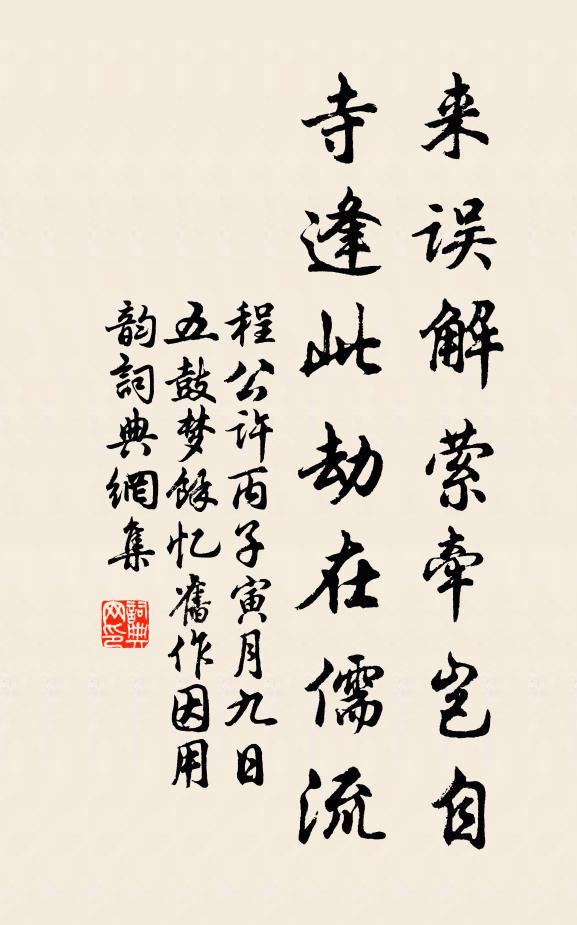 来误解萦牵岂自
寺逢此劫在儒流
程公许丙子寅月九日
五鼓梦馀忆旧作因用
韵詞典網集
詞典网印